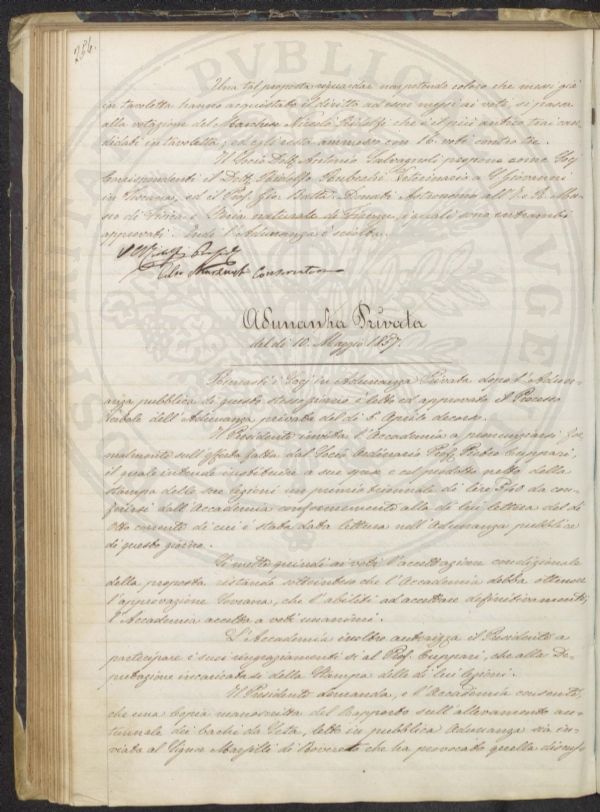 284.
Una tal proposta riguardar non potendo coloro che messi già
in tavoletta hanno acquistato il diritto ad esser messi ai voti, si passa
alla votazione del Marchese Niccolò Ridolfi che è il più antico trai can-
didati in tavoletta, ed egli resta ammesso con 16 voti contro tre.
Il Socio Dott. Antonio Salvagnoli propone come Socj
Corrispondenti il Dott. Ridolfo Veterinario a S. Giovanni
in Toscana, ed il Prof. Gio: Batta. Donati Astronomo all' I. e R. Mu-
seo di Fisica e Storia naturale di Firenze, i quali sono entrambi
approvati. Indi l'Adunanza è sciolta.
Conservatore
Adunanza Privata
del dì 10. Maggio 1857.
Rimasti i Socj in Adunanza Privata dopo l'Adun-
anza pubblica di questo stesso giorno è letto ed approvato il Processo
Verbale dell'Adunanza privata del dì 5 Aprile decorso.
Il Presidente invita l'Accademia a pronunziarsi for-
malmente sull'offerta fatta dal Socio Ordinario Prof. Pietro Cuppari,
il quale intende instituire a sue spese e col prodotto netto della
stampa delle sue lezioni un premio biennale di lire da con-
ferirsi dall'Accademia conformemente alla di lui lettera del dì
otto corrente di cui è stata data lettura nell'Adunanza pubblica
di questo giorno.
Si mette quindi ai voti l'accettazione condizionale
della proposta restando sottinteso che l'Accademia debba ottenere
l'approvazione Sovrana, che l'abiliti ad accettare definitivamente;
l'Accademia accetta a voti unanimi.
L'Accademia inoltre autorizza il Presidente a
partecipare i suoi ringraziamenti sì al Prof. Cuppari, che alla De-
putazione incaricata della Stampa delle di lui lezioni.
Il Presidente domanda, e l'Accademia consente,
che una Copia manoscritta del Rapporto sull'allevamento au-
tunnale dei bachi da Seta, letto in pubblica Adunanza sia in-
viata al Signor di Rovereto che ha provocato quella